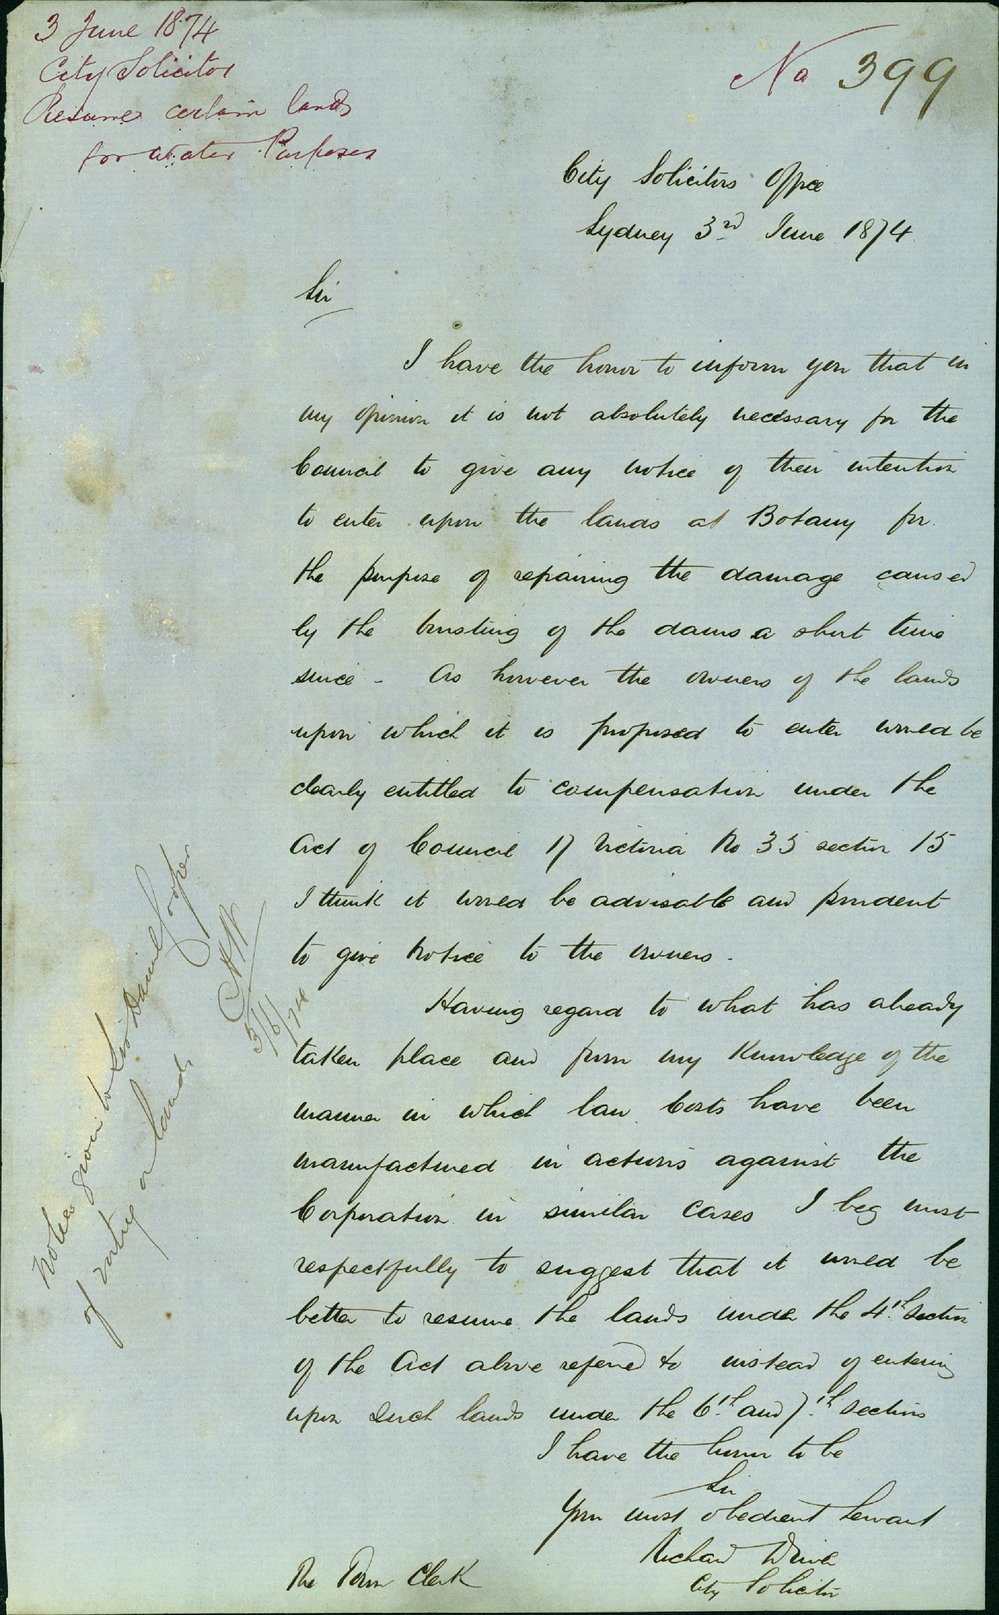 3 June 1874
City Solicitor
Resume certain lands
for water Purposes
No 399
City Solicitors Office
Sydney 3rd June 1874
Sir
I have the honor to inform you that in
my opinion it is not absolutely necessary for the
Council to give any notice of their intention
to enter upon the lands at Botany for
the purpose of repairing the damage caused
by the bursting of the dams a short time
since - As however the owners of the lands
upon which it is proposed to enter would be
clearly entitled to compensation under the
Act of Council 17 Victoria No 35 section 15
I think it would be advisable and prudent
to give notice to the owners.
Having regard to what has already
taken place and from my Knowledge of the
manner in which law Costs have been
manufactured in actions against the
Corporation in similar cases I beg most
respectfully to suggest that it would be
better to resume the lands under the 4th Section
of the Act above referred to instead of entering
upon such lands under the 6th and 7th sections
I have the honor to be
Sir
Your most obedient Servant
Richard Driver
City Solicitor
The Town Clerk
Notice given to Sir Daniel Cooper
of entry on lands
5/6/74